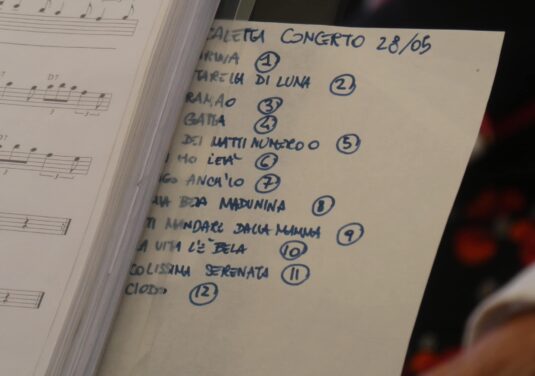 CALETTA CONCERTO 28/05
1
TARELLA DI LUNA 2
RAMAO 3
GATTA 4
DEI MATTI NUMERO 0 5
MO LEVA' 6
GO ANCH'IO 7
BELA MADUNINA 8
TI MANDARE DALLA MAMMA 9
LA VITA L'È BELA 10
COLISSIMA SERENATA 11
CIODO 12
D7
D7
3
3